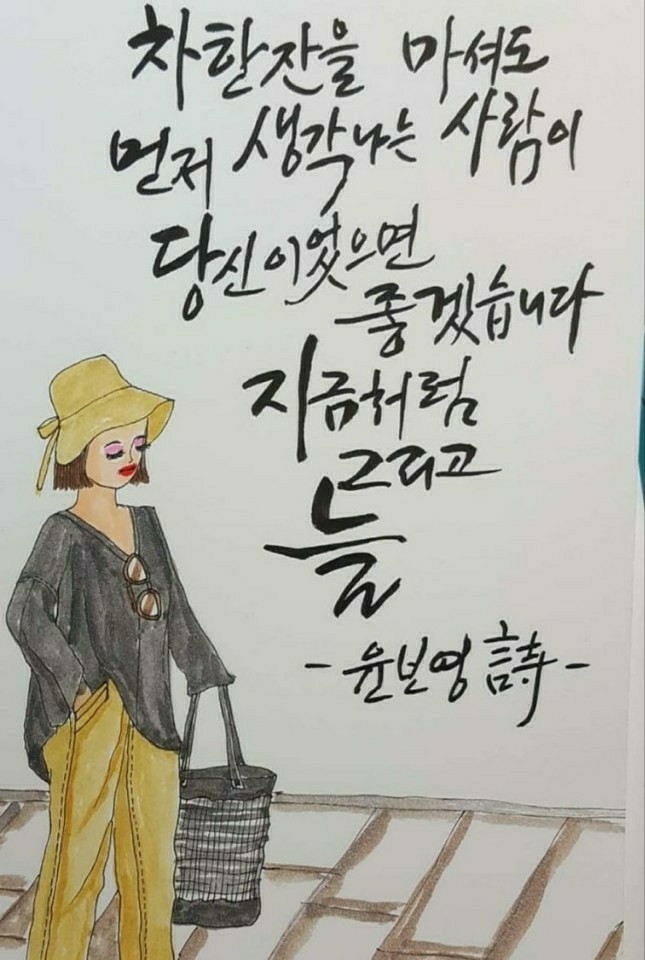 차한잔을 마셔도
먼저 생각나는 사람이
당신이었으면
좋겠습니다
지금처럼
그리고
늘
- 윤보영 詩 -